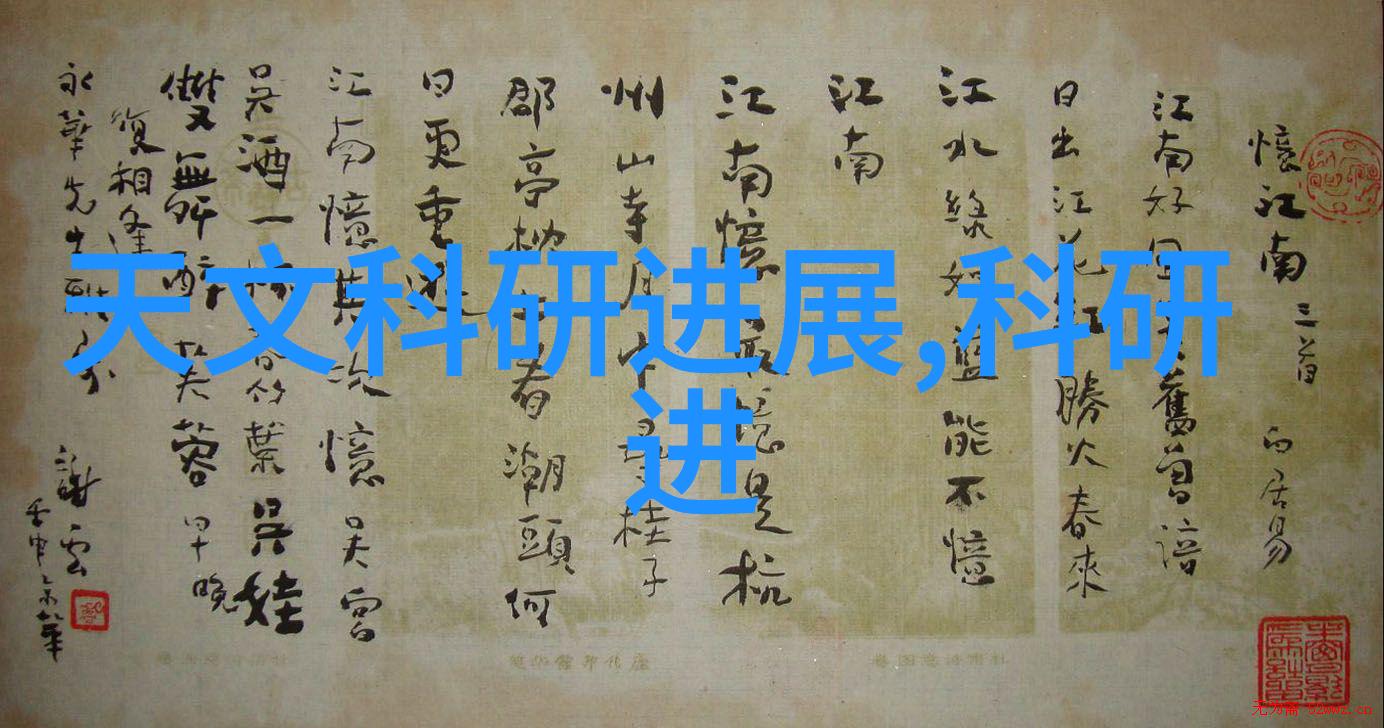 天文科研进展,科研
进
憶江南 三首 白居易
江南好風舊曾諳
日出江花紅勝火春來
江水綠如藍能不憶
江南
江南憶最憶是杭
州山寺月中尋桂子
郡亭枕上看潮頭何
日更重遊
江南憶其次憶吳宮
吳酒一杯春竹葉吳娃
雙舞醉芙蓉早晚
復相逢
永華先生
謝雲
壬申
无为斋 52wwz.cn